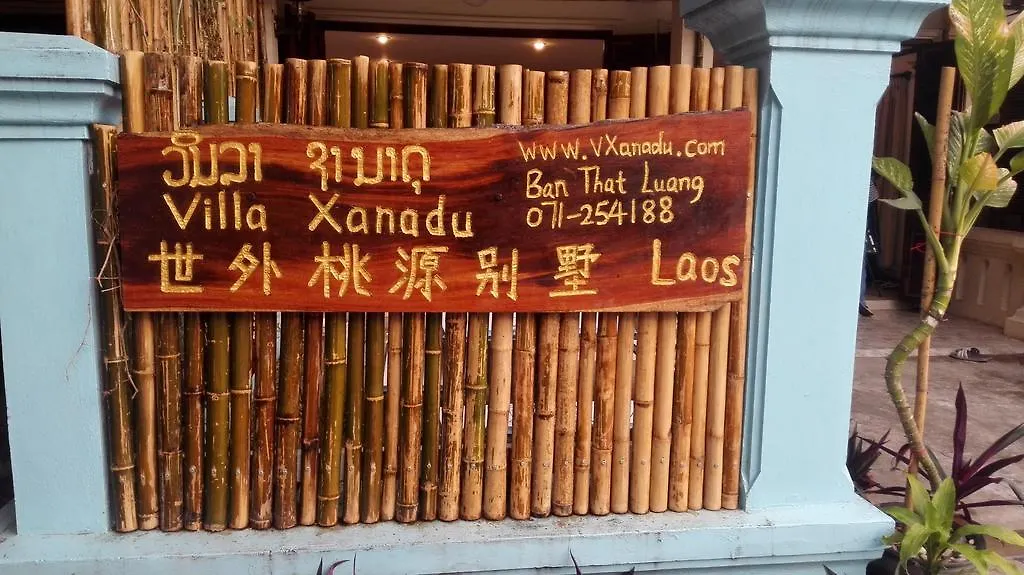 ວິນວາ ຊານາດຸ
Villa Xanadu
世外桃源别墅 Laos
www.vXanadu.com
Ban That Luang
071-254188